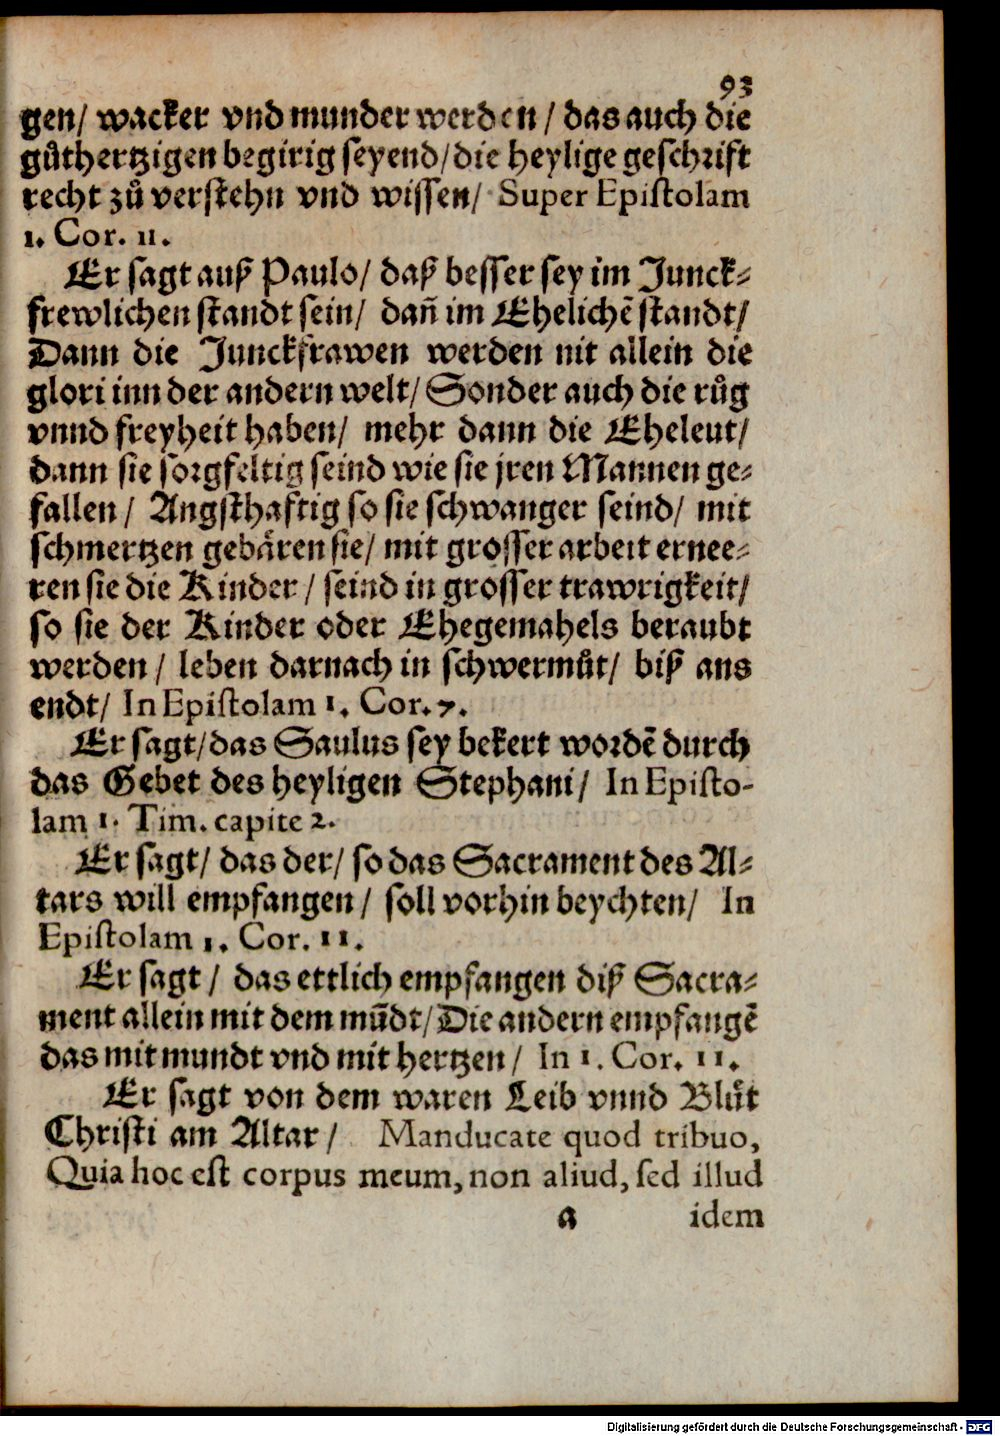 93
gen/ wacker vnd munder werden/ das auch die
gůthertzigen begirig seyend/die heylige geschrift
recht zů verstehn vnd wissen/ Super Epistolam
1. Cor. 11.
Er sagt auß Paulo/ daß besser sey im Junck⸗
frewlichen standt sein/ dañ im Ehelichẽ standt/
Dann die Junckfrawen werden nit allein die
glori inn der andern welt/ Sonder auch die růg
vnnd freyheit haben/ mehr dann die Eheleut/
dann sie sorgfeltig seind wie sie jren Mannen ge⸗
fallen/ Angsthaftig so sie schwanger seind/ mit
schmertzen gebären sie/ mit grosser arbeit ernee⸗
ren sie die Kinder/ seind in grosser trawrigkeit/
so sie der Kinder oder Ehegemahels beraubt
werden/ leben darnach in schwermůt/ biß ans
endt/ In Epistolam 1. Cor. 7.
Er sagt/das Saulus sey bekert wordẽ durch
das Gebet des heyligen Stephani/ In Episto-
lam 1. Tim. capite 2.
Er sagt/ das der/ so das Sacrament des Al⸗
tars will empfangen/ soll vorhin beychten/ In
Epistolam 1. Cor. 11.
Er sagt/ das ettlich empfangen diß Sacra⸗
ment allein mit dem mũdt/Die andern empfangẽ
das mit mundt vnd mit hertzen/ In 1. Cor. 11.
Er sagt von dem waren Leib vnnd Blůt
Christi am Altar/ Manducate quod tribuo,
Quia hoc est corpus meum, non aliud, sed illud
a idem
Digitalisierung gefördert durch die Deutsche Forschungsgemeinschaft - DFG